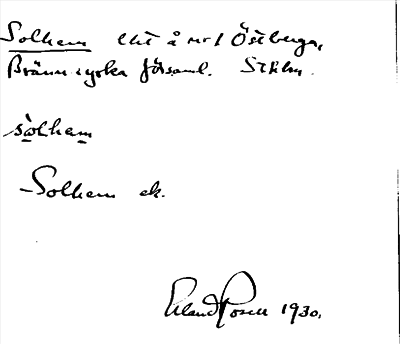 Solhem lht å nr 1 Östberga,
Brännkyrka församl. Sthlm.
sòlhem
Solhem ek.
Erland Rosell 1930.